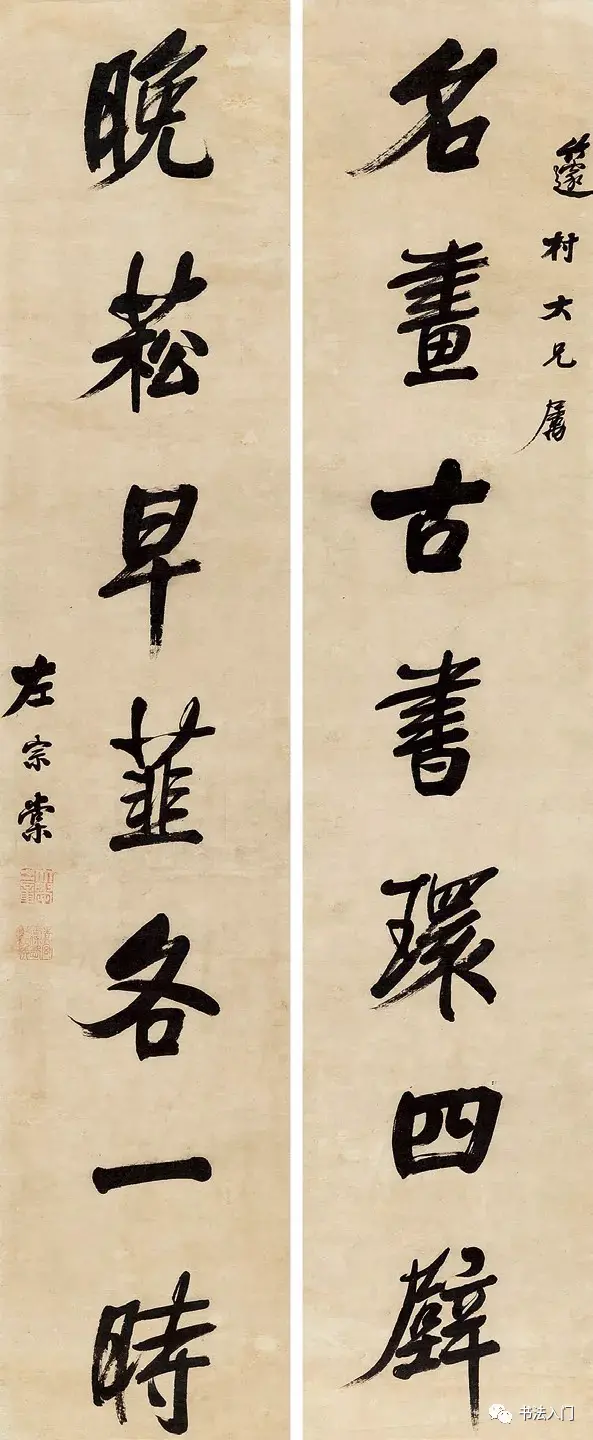 籧村大兄属
名畫古書環四壁
晚菘早韮各一時
左宗棠
书法入门